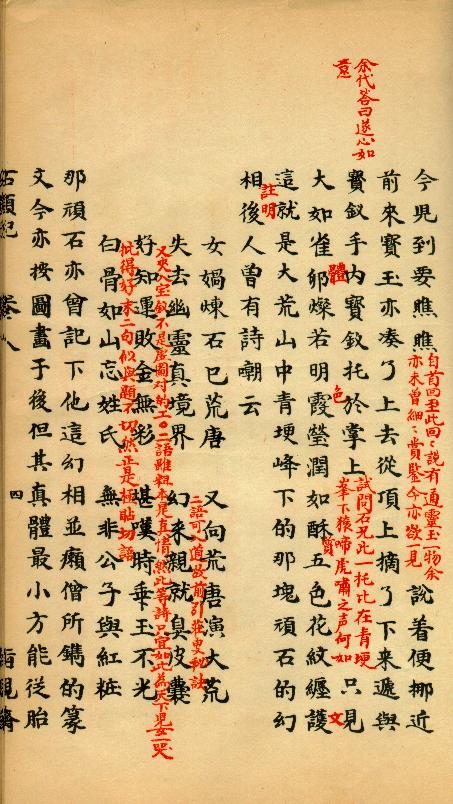 今兒到要瞧瞧
自首回至此回〻說有通靈玉一物余
亦未曾細〻賞鑒今亦欲一見
說着便挪近
前來寶玉亦凑了上去從頂上摘了下來遞與
寶釵手内寶釵托於掌上
試問石兄此一托比在青埂
峯下猿啼虎嘯之声何如
只見
余代答曰遂心如
意
大如雀卵燦若明霞瑩潤如酥五色花紋纏護
體 色 質 文
這就是大荒山中青埂峰下的那塊頑石的幻
相後人曾有詩嘲云
註明
女媧煉石已荒唐 又向荒唐演大荒
二語可入道故前引莊叟秘訣
失去幽靈真境界 幻來親就臭皮囊
又夾入宝釵不是虛圖對的工〇二語雖粗本是真情然此等詩只宜如此為天下児女一哭
好知運敗金無彩 堪嘆時乖玉不光
批得好末二句似與題不切然正是極貼切語
白骨如山忘姓氏 無非公子與紅粧
那頑石亦曾記下他這幻相並癩僧所鐫的篆
文今亦按圖畫于後但其真體最小方能從胎
石頭記 卷八 四 脂硯齋